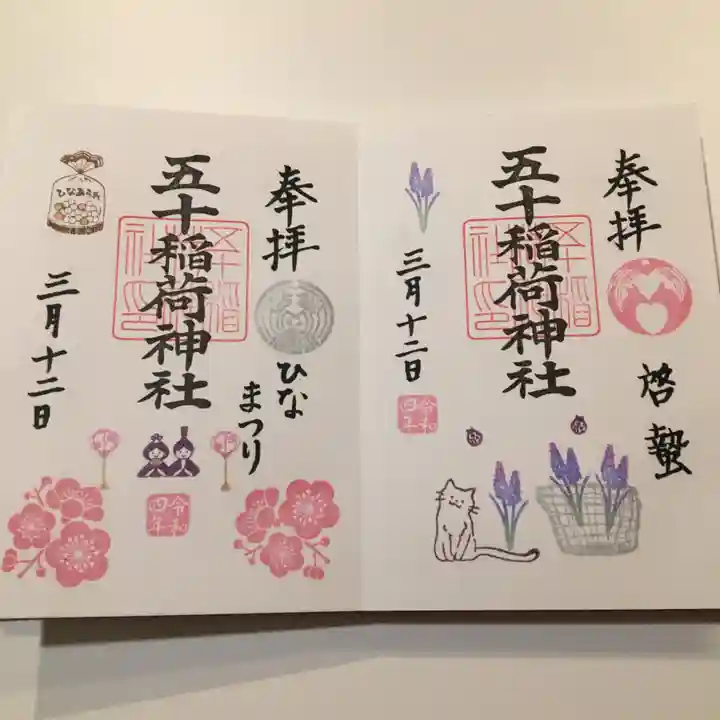 奉拝
啓蟄
五十稲荷神社
三月十二日
令和四年
奉拝
ひな
まつり
五十稲荷神社
令和四年
ひなあられ
三月十二日